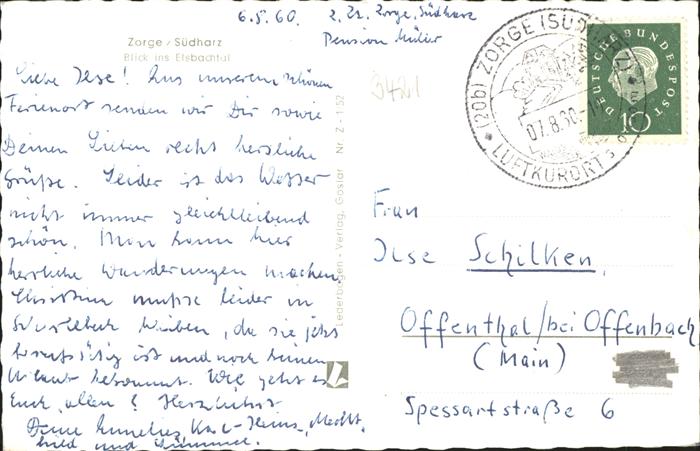 6.8.60. z. Zt. Zorge, Südharz
Pension Müller
Zorge / Südharz
Blick ins Elsbachtal
Liebe Ilse! Aus unserem schönen
Ferienort senden wir Dir sowie
Deinen Lieben recht herzliche
Grüße. Leider ist das Wetter
nicht immer gleichbleibend
schön. Man kann hier
herrliche Wanderungen machen.
Christina mußte leider in
bleiben, da sie jetzt
berufstätig ist und noch keinen
Urlaub bekommt. Wie geht es
Euch allen? Herzlichst
Deine Annelies, Karl-Heinz, Mecht-
hild und
3421
Lederbogen-Verlag, Goslar Nr. Z-1 52
(20b) ZORGE (SÜDHARZ)
07.8.60
LUFTKURORT
DEUTSCHE BUNDESPOST
10
Frau
Ilse Schilken,
Offenthal/bei Offenbach
(Main)
Spessartstraße 6